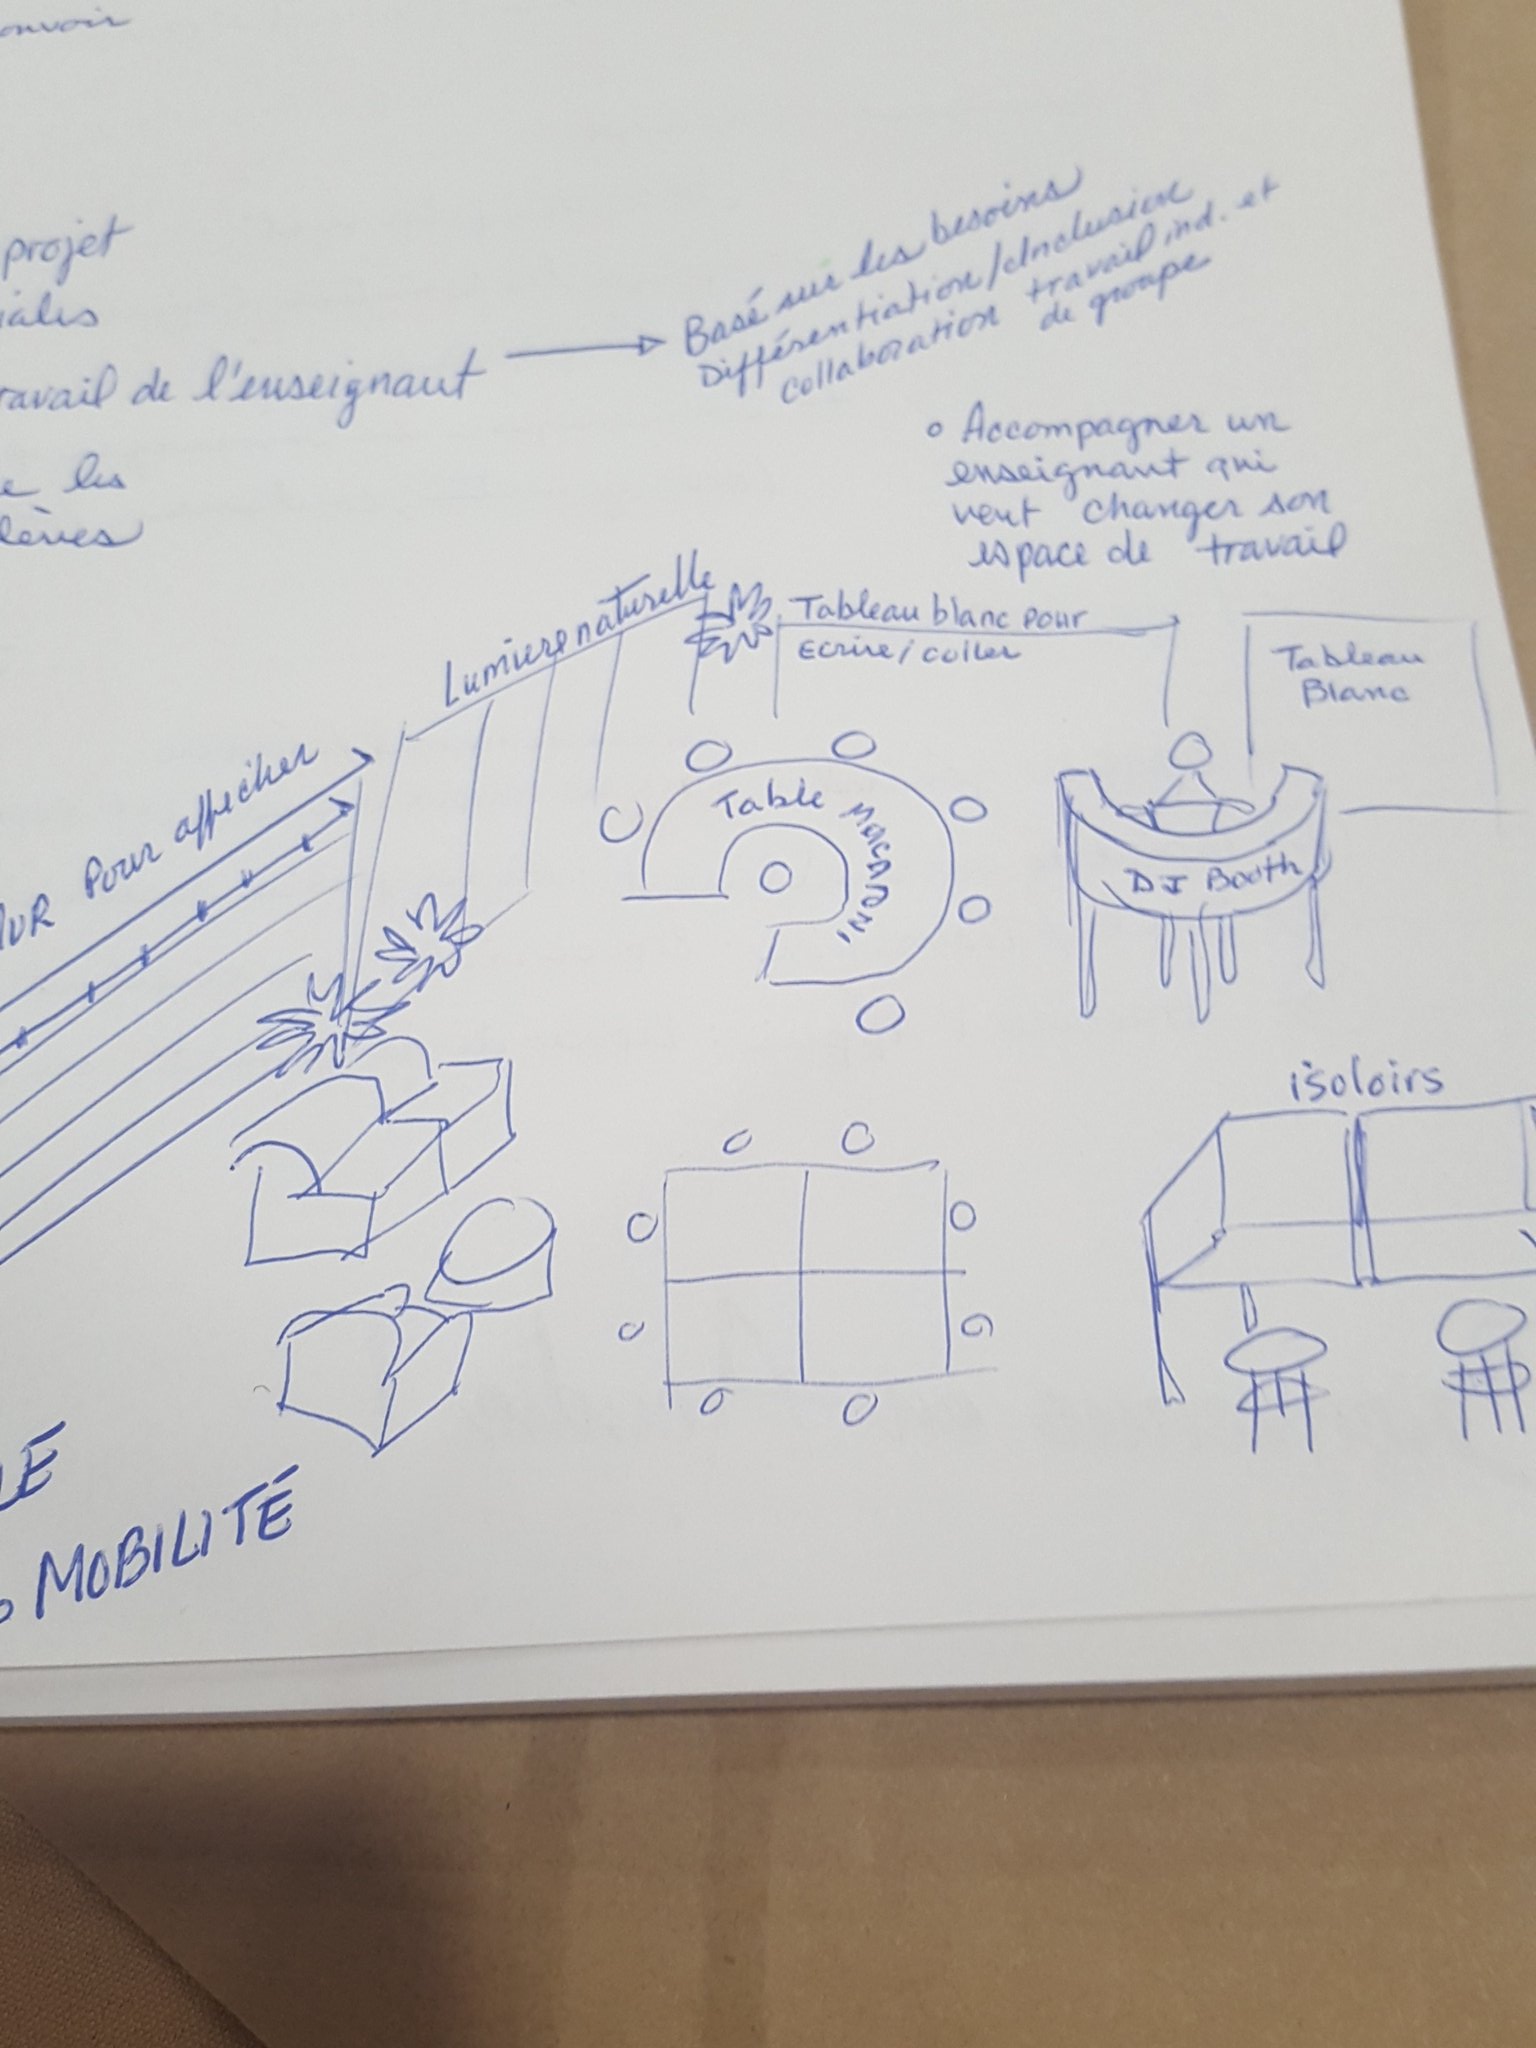 projet
Basé sur les besoins
Différentiation/Inclusion
collaboration travail ind. et
de groupe
de l'enseignant
les
Accompagner un
enseignant qui
veut changer son
espace de travail
Lumière naturelle
Tableau blanc pour
Ecrire/coller
Tableau
Blanc
pour afficher
Table Macaroni
DJ Booth
isoloirs
MOBILITÉ